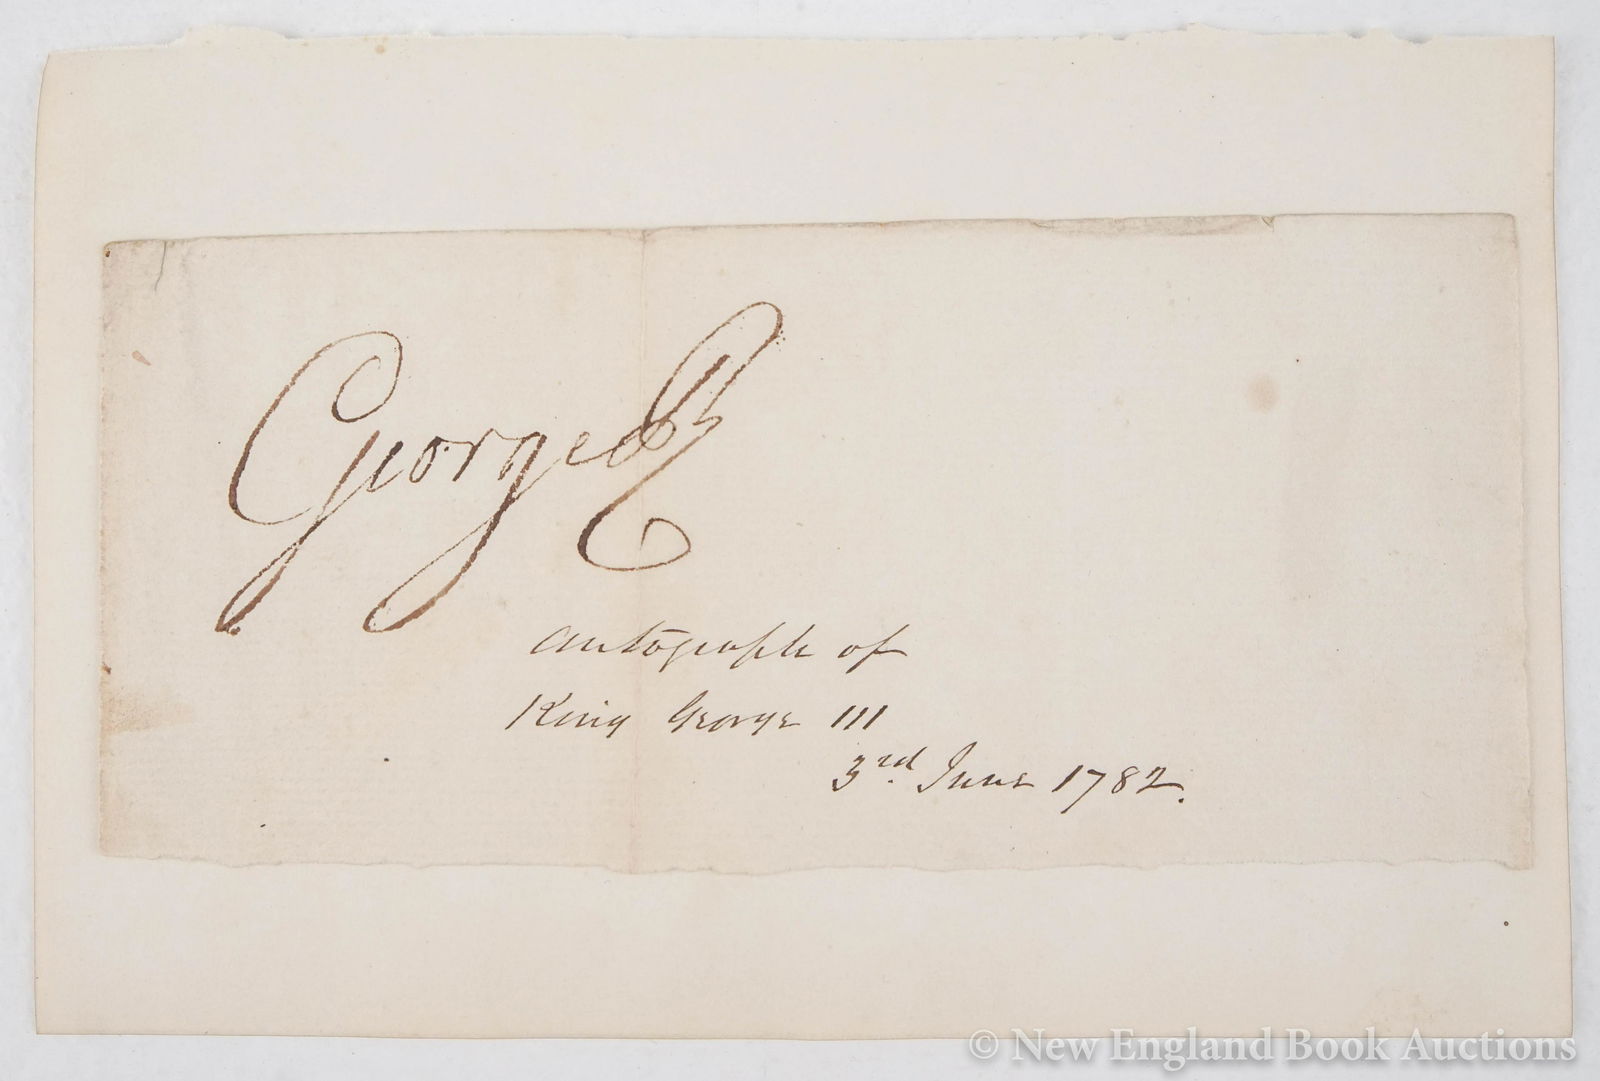 George R
autograph of
King George III
3rd. June 1782.
© New England Book Auctions